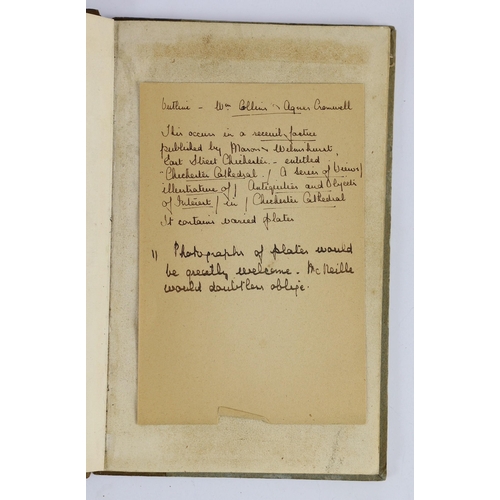 outline - Wm Collins & Agnes Cromwell
This occurs in a recueil factice
published by Mason & Wilmshurst,
East Street Chichester - entitled
Chichester Cathedral / A Series of Views /
illustrative of / Antiquities and Objects
of Interest / in / Chichester Cathedral
It contains varied plates
11 Photographs of plates would
be greatly welcome. McNeille
would doubtless oblige.